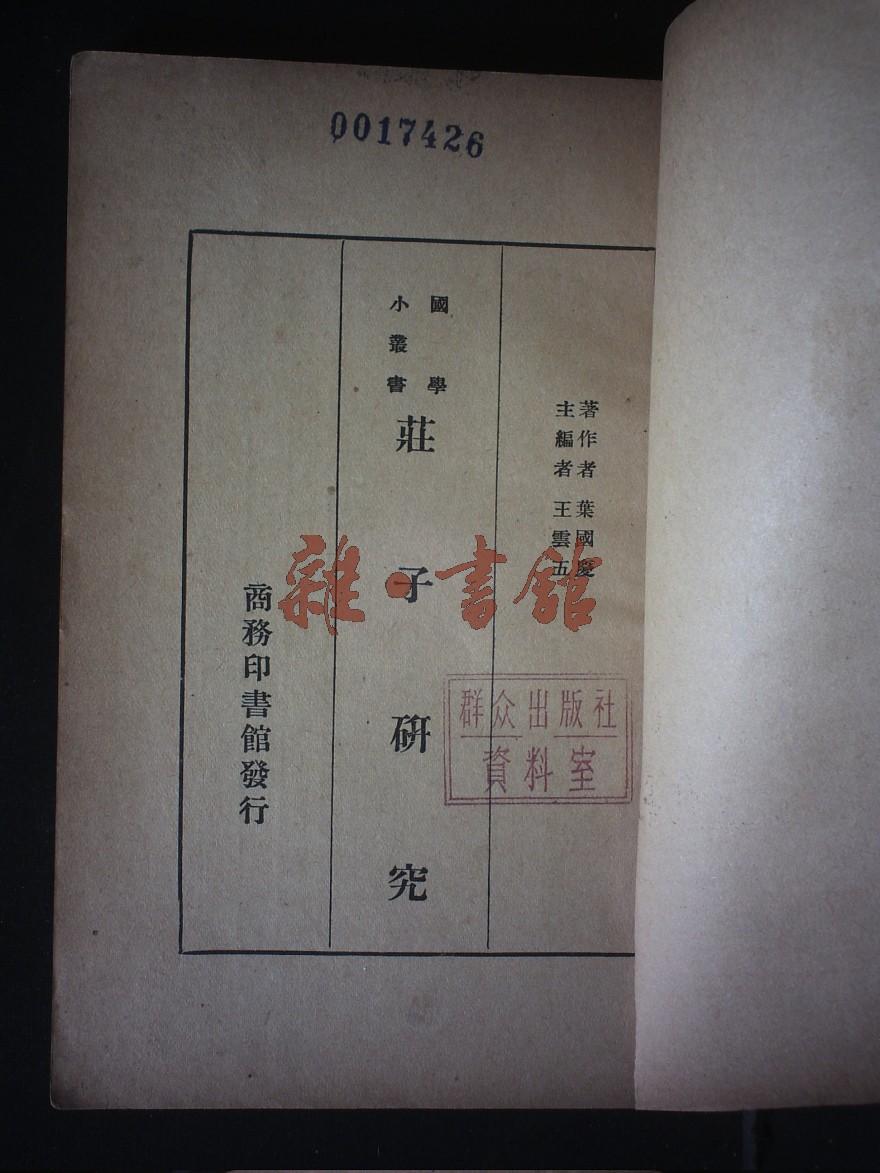 0017426
著作者 葉國慶
主編者 王雲五
國學
小叢書
莊子研究
商務印書館發行
雜·書館
群众出版社
資料室